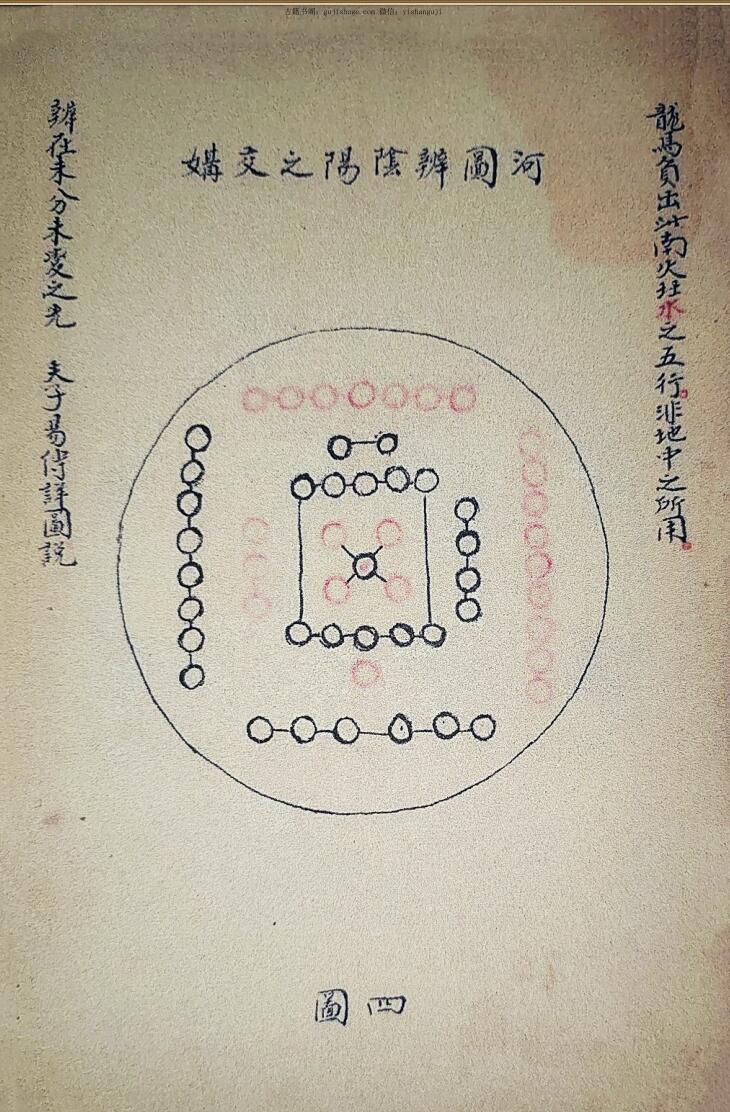 古籍书阁：gujishuge.com 微信：yishanguji
河圖辨陰陽之交媾
龍馬負出河南火北水之五行非地中之所用
辨在未分未變之先 夫子易傳詳圖説
四圖